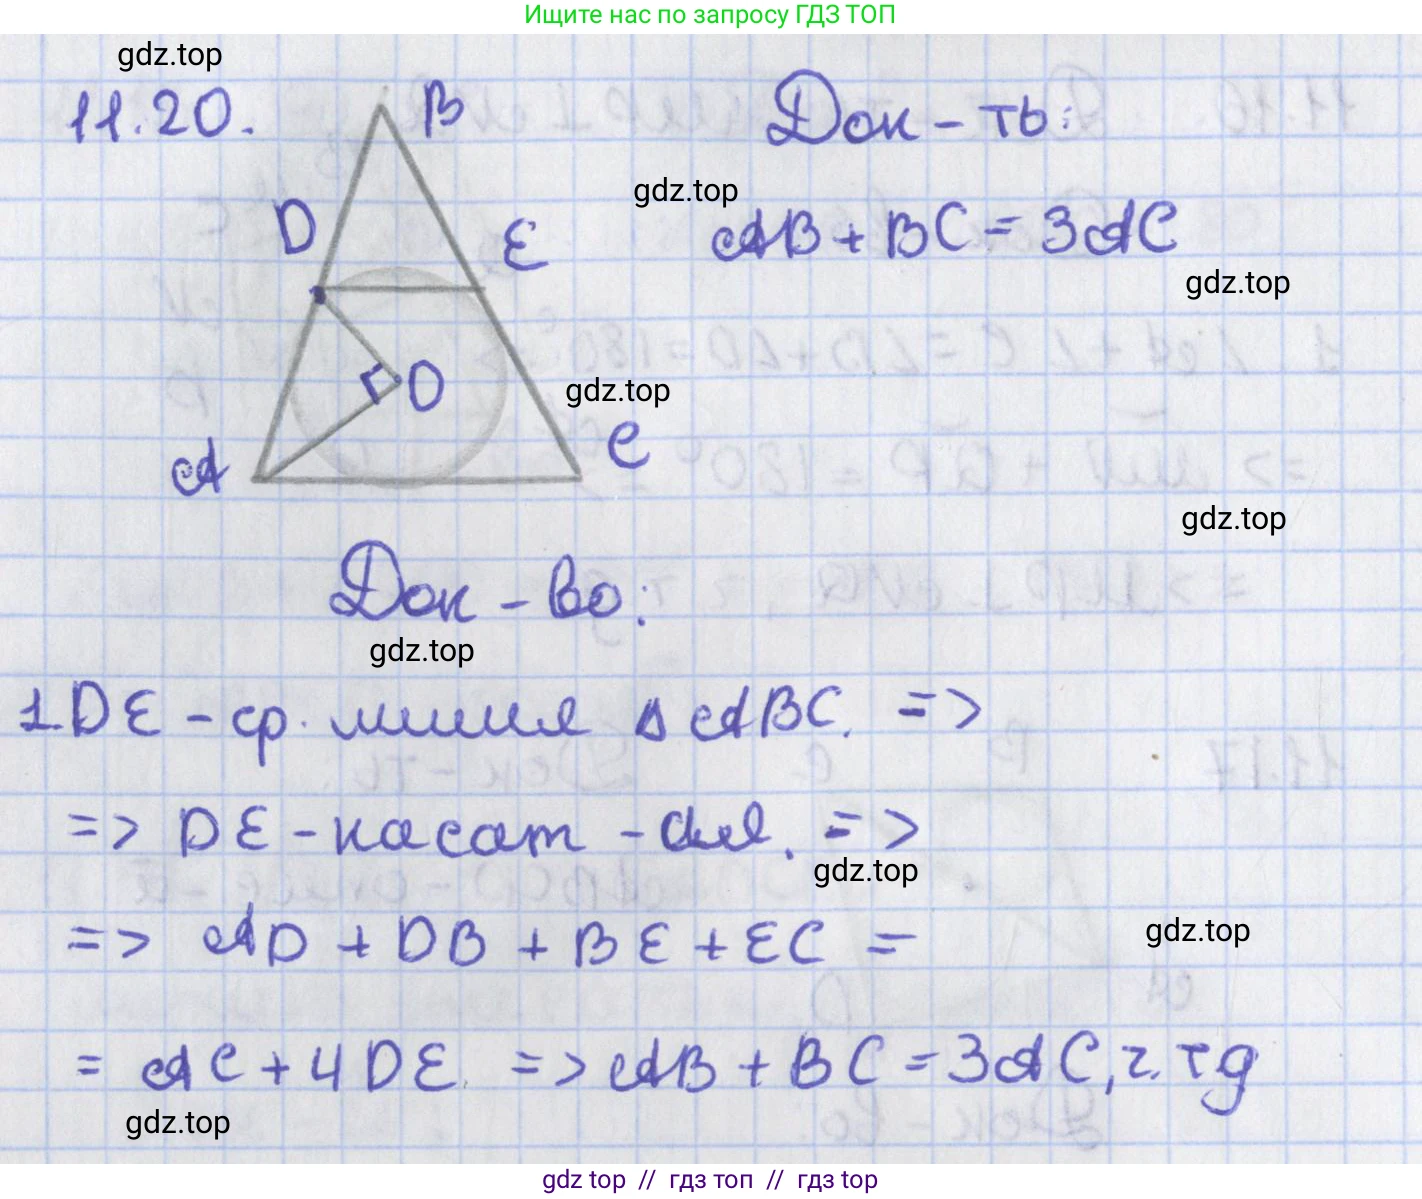 Ищите нас по запросу ГДЗ ТОП
gdz.top
11.20.
B
Док-ть:
gdz.top
D
E
AB + BC = 3AC
gdz.top
O
gdz.top
A
C
gdz.top
Док-во:
gdz.top
1 DE - ср. линия Δ ABC. =>
=> DE - касат-ая. =>
gdz.top
=> AD + DB + BE + EC =
gdz.top
= AC + 4DE. => AB + BC = 3AC, ч.т.д
gdz.top
gdz top // гдз топ // гдз top